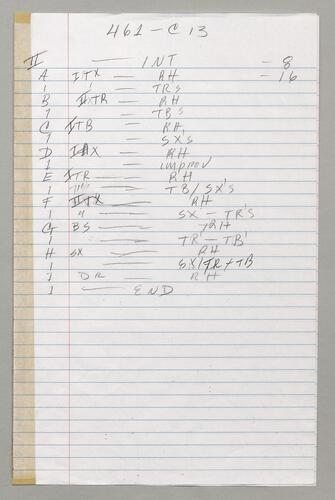 461 - C 13
II — INT - 8
A I TX — RH - 16
1 ' — TRS
B II TR — RH
1 — TBS
C I TB — RH
1 — SX'S
D TX — RH
1 — IMPROV
E I TR — RH
1 " — TB / SX'S
F TX — RH
1 " — SX - TR'S
G BS — RH
1 — TR' - TB'
H SX — RH
1 — SX/TR + TB
1 DR — RH
1 — END